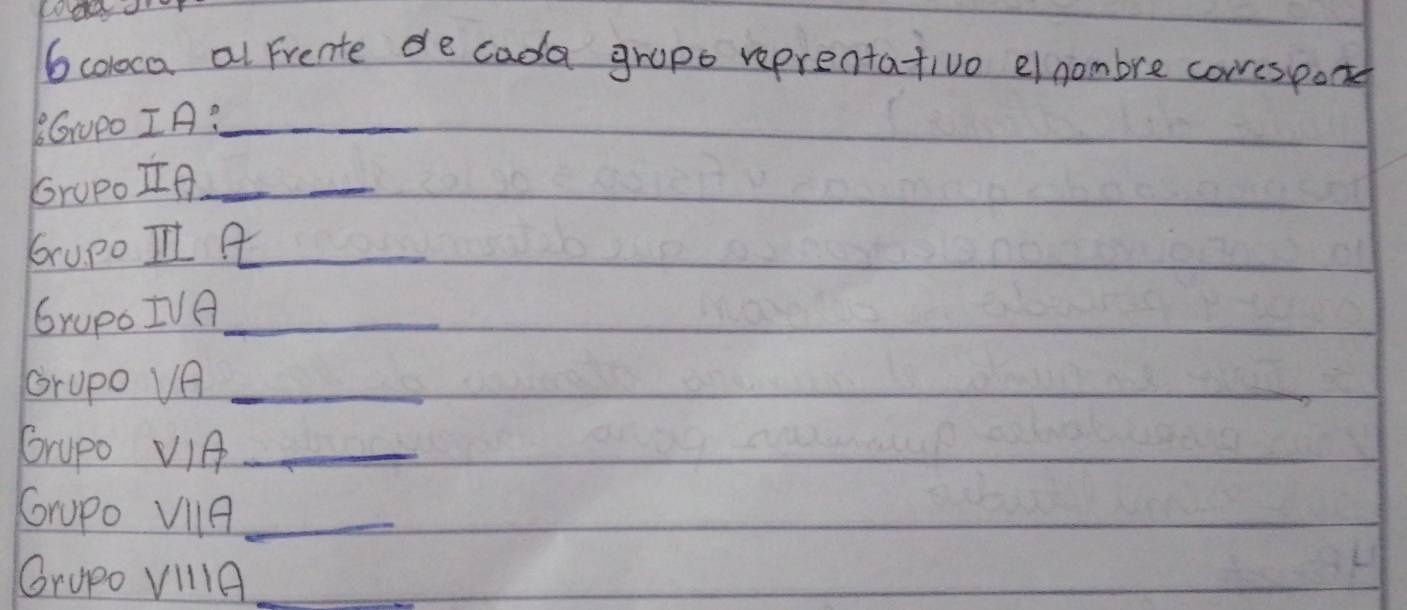 6 coloca al Frente de cada grupo reprentativo el nombre correspond
Grupo IA:
Grupo IIA
Grupo III A
Grupo IVA
Grupo VA
Grupo VIA
Grupo VIIA
Grupo VIIIA